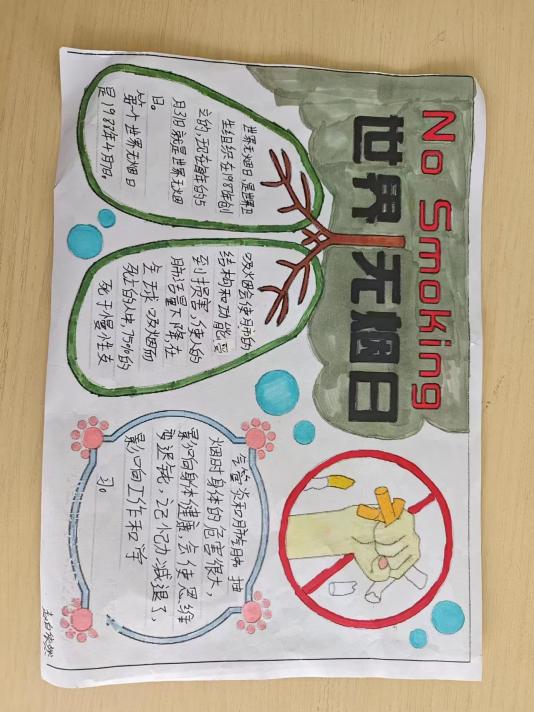 No Smoking
世界无烟日
世界无烟日是世界卫
生组织在1987年创
立的,现在每年的5
月31日就是世界无烟
日。
第一个世界无烟日
是1988年4月7日。
吸烟会使肺的
结构和功能受
到损害,使人的
肺活量下降在
全球吸烟而
死亡的人中,75%的
死于慢性支
气管炎和肺气肿 抽
烟时身体的危害很大,
影响身体健康,会使思维
变迟钝,记忆力减退了,
影响工作和学
习。